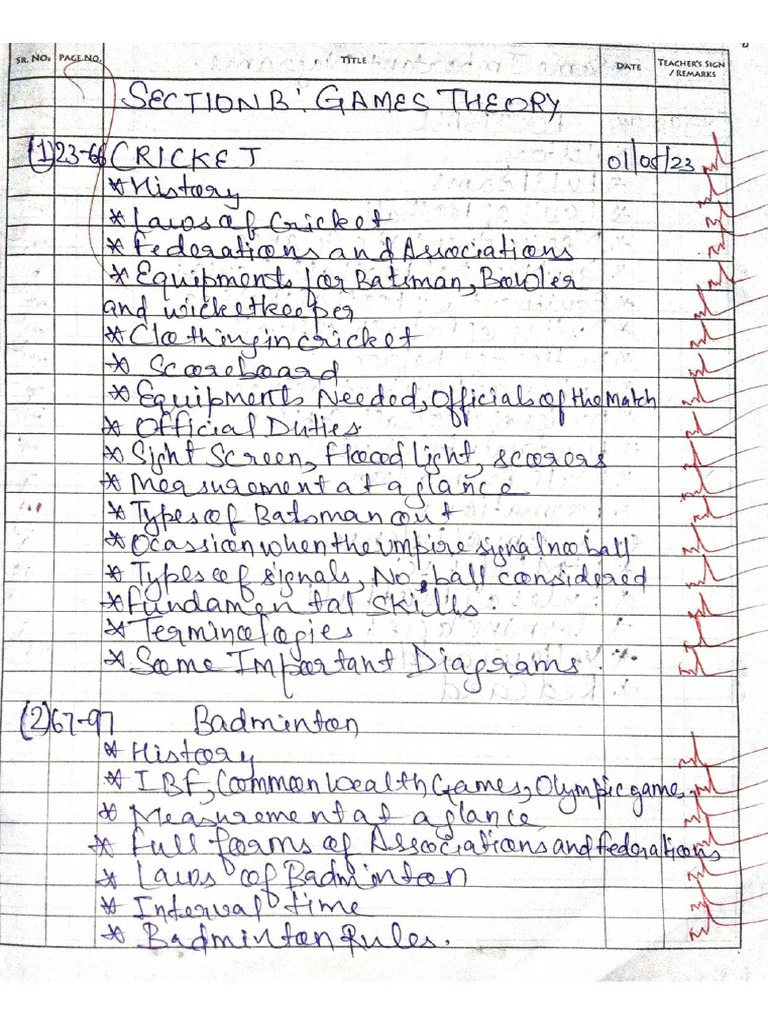 SR. NO. PAGE NO. TITLE DATE TEACHER'S SIGN / REMARKS
SECTION B: GAMES THEORY
(1) 23-66 CRICKET 01/05/23
* History
* Laws of Cricket
* Federations and Associations
* Equipments for Batsman, Bowler
and wicketkeeper
* Clothing in cricket
* Scoreboard
* Equipments Needed, Officials of the Match
* Official Duties
* Sight Screen, Flood light, scorers
* Measurement at a glance
* Types of Batsman out
* Ocassion when the umpire signal no ball
* Types of signals, No ball considered
* Fundamental Skills.
* Terminologies
* Some Important Diagrams
(2) 67-97 Badminton
* History
* IBF, Common Wealth Games, Olympic game.
* Measurement at a glance
* Full forms of Associations and federations
* Laws of Badminton
* Interval time
* Badminton Rules.